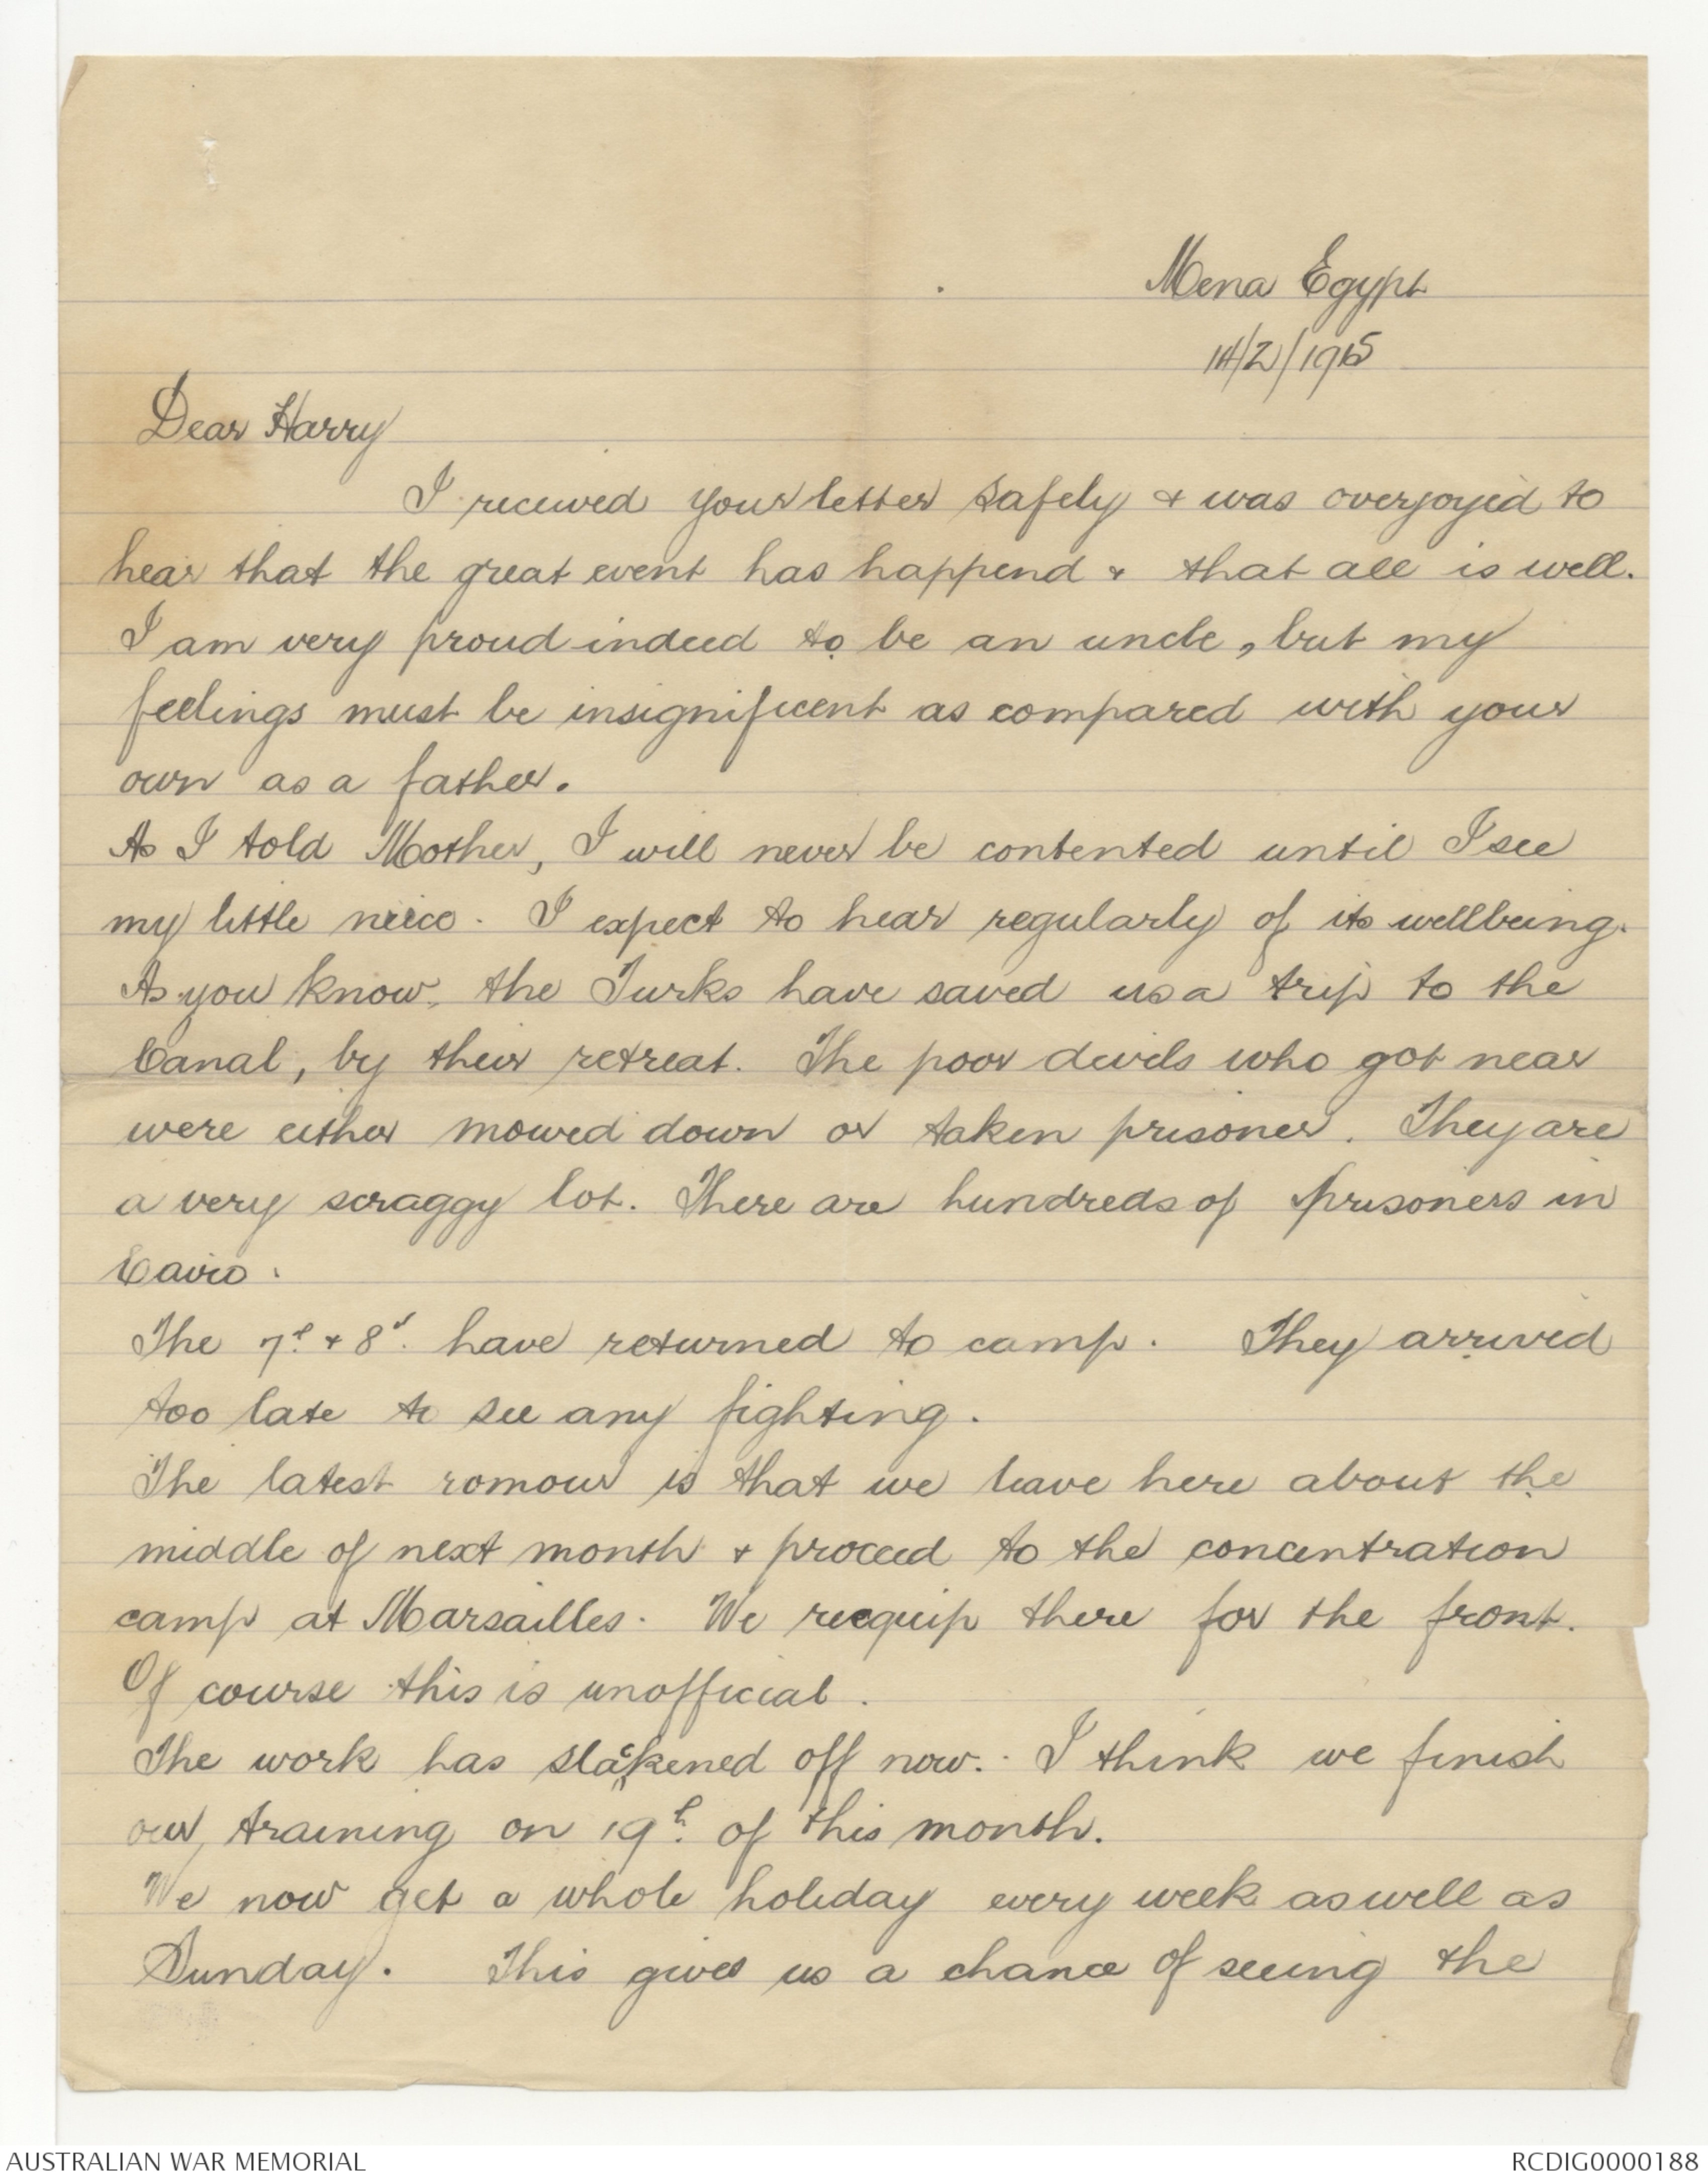 Mena Egypt
14/2/1915
Dear Harry
I received your letter safely & was overjoyed to
hear that the great event has happend & that all is well.
I am very proud indeed to be an uncle, but my
feelings must be insignificent as compared with your
own as a father.
As I told Mother, I will never be contented until I see
my little neice. I expect to hear regularly of its wellbeing.
As you know, the Turks have saved us a trip to the
Canal, by their retreat. The poor devils who got near
were either mowed down or taken prisoner. They are
a very scraggy lot. There are hundreds of prisoners in
Cairo.
The 7th & 8th have returned to camp. They arrived
too late to see any fighting.
The latest romour is that we leave here about the
middle of next month & proceed to the concentration
camp at Marsailles. We reequip there for the front.
Of course this is unofficial.
The work has slackened off now. I think we finish
our training on 19th of this month.
We now get a whole holiday every week as well as
Sunday. This gives us a chance of seeing the
AUSTRALIAN WAR MEMORIAL
RCDIG0000188